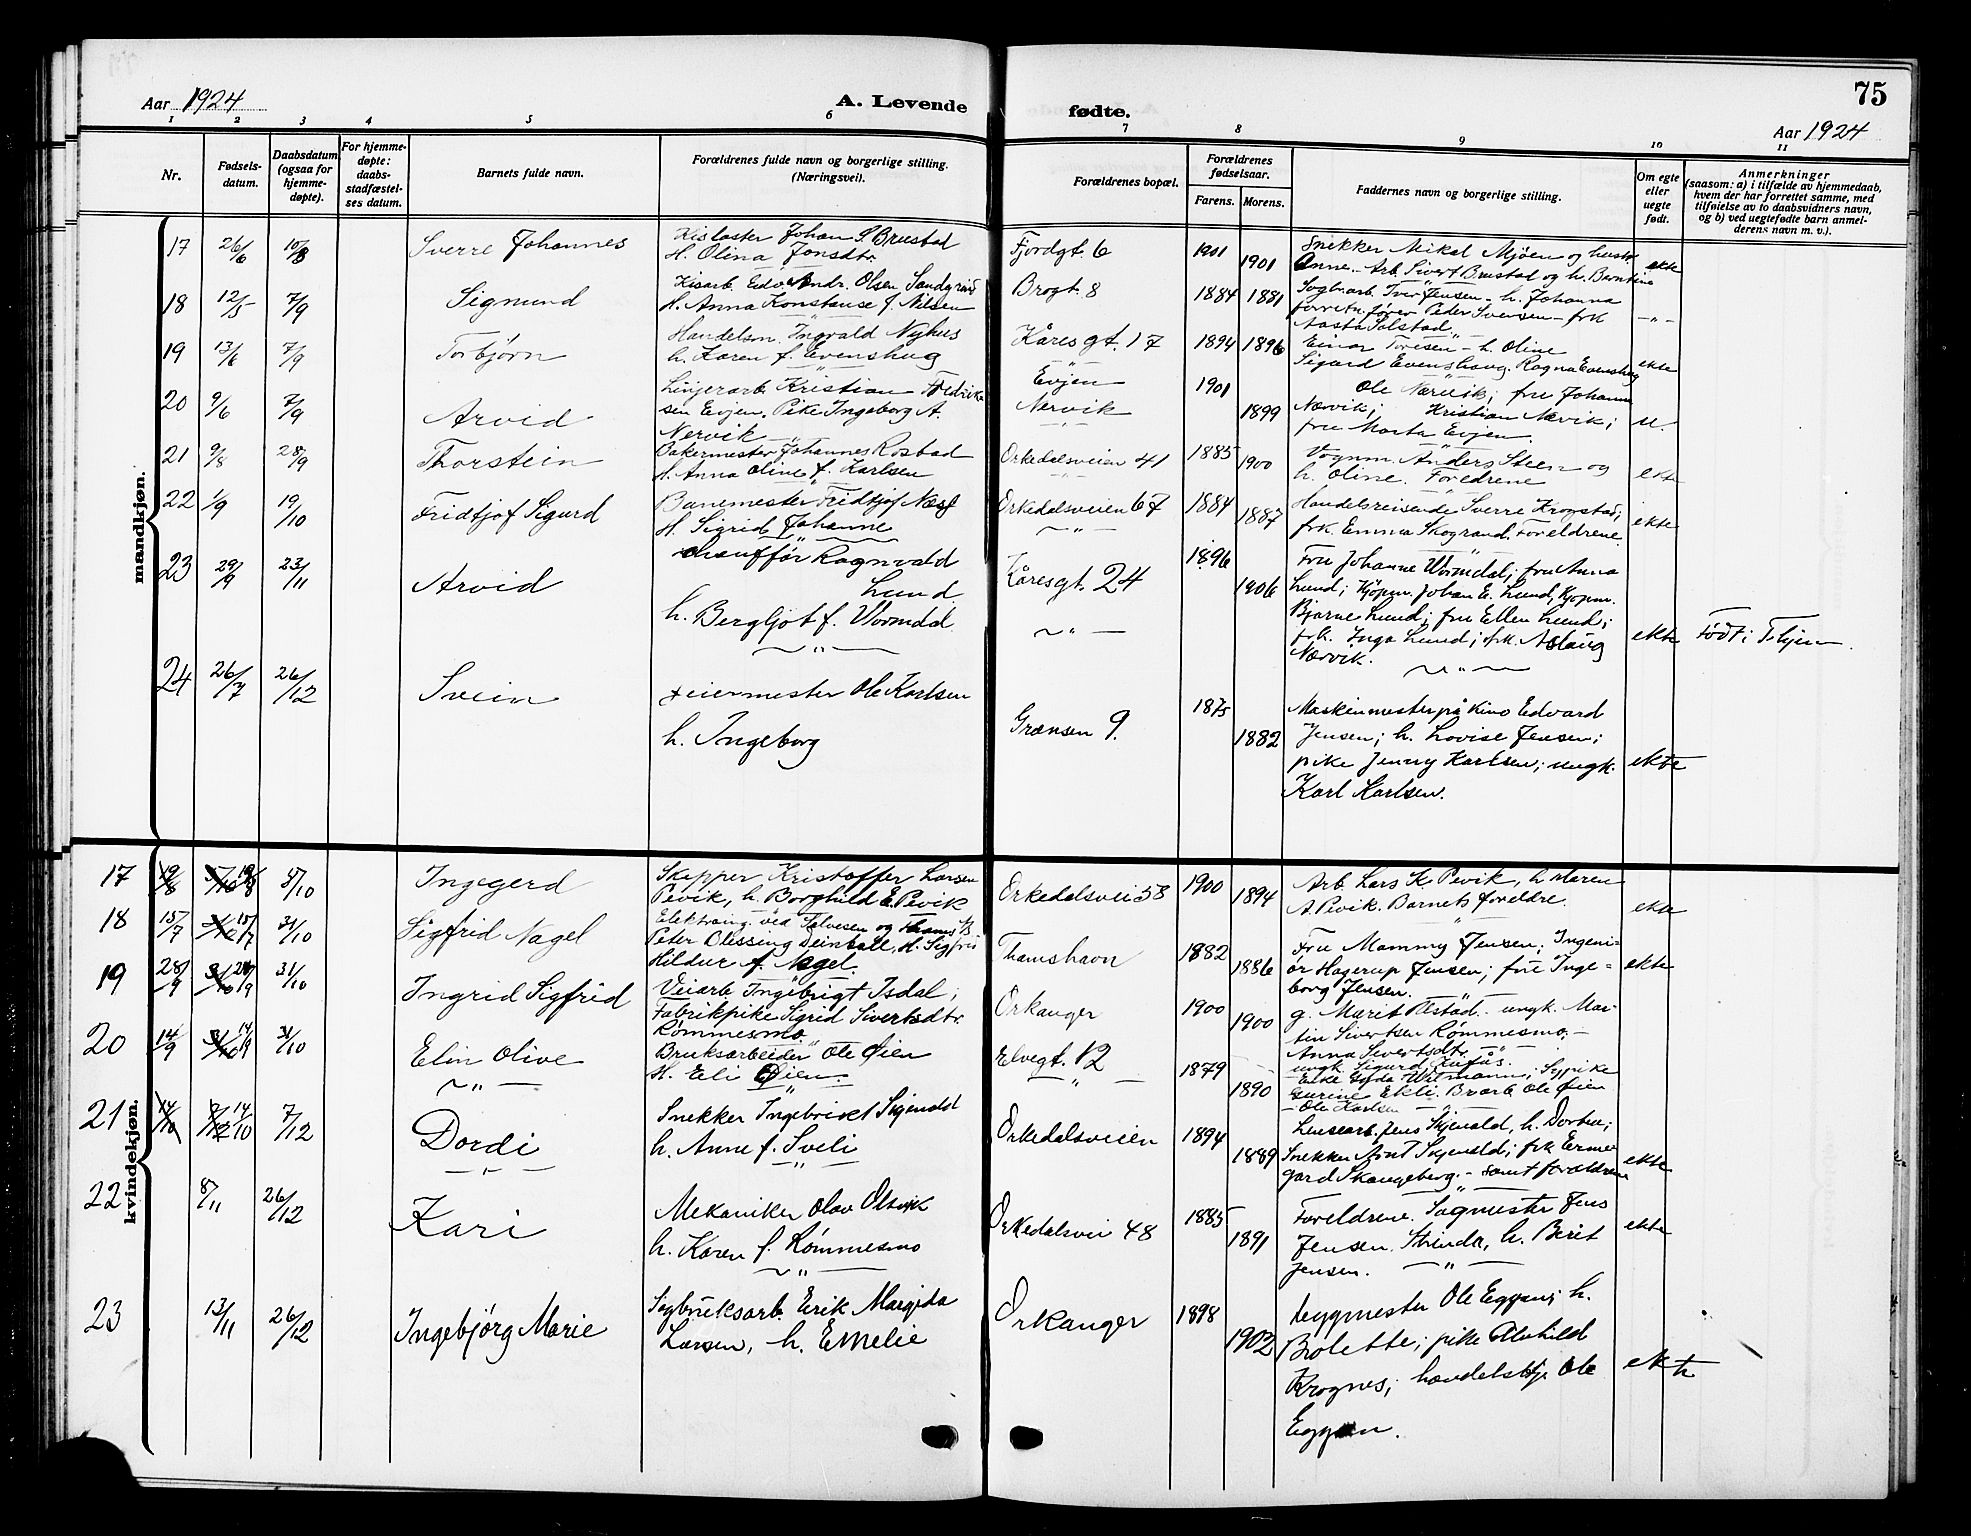 75
Aar 1924
A. Levende
fødte.
Aar 1924
1 2 3 4 5 6 7 8 9 10 11
Nr.
Fødsels-
datum.
Daabsdatum
(ogsaa for
hjemme-
døpte).
For hjemme-
døpte:
daabs-
stadfæstel-
ses datum.
Barnets fulde navn.
Forældrenes fulde navn og borgerlige stilling.
(Næringsvei).
Forældrenes bopæl.
Forældrenes
fødselsaar.
Farens. Morens.
Faddernes navn og borgerlige stilling.
Om egte
eller
uegte
født.
Anmerkninger
(saasom: a) i tilfælde av hjemmedaab,
hvem der har forrettet samme, med
tilføielse av to daabsvidners navn,
og b) ved uegtefødte barn anmel-
derens navn m. v.).
mandkjøn.
17 26/6 10/8 Sverre Johannes
Johan S. Brustad
H. Olina Jonsdtr.
Fjordgt. 6 1901 1901
Snekker Mikal Mjøen og hustr.
Anne. Arb. Sivert Brustad og h. Berntine
ekte
18 12/5 7/9 Sigmund
Kisarb. Edv. Andr. Olsen
H. Anna Konstanse f. Nilsen
Brogt. 8 1884 1881
Iver Jensen - h. Johanna
Peder Svensen - frk
Aasta Solstad.
- " -
19 13/6 7/9 Torbjørn
Handelsm. Ingvald Nyhus
h. Karen f. Evenshug
Kåresgt. 17 1894 1896
Einar Toresen - h. Oline
Sigurd Evenshaug. Ragna Evenshug
ekte
20 9/6 7/9 Arvid
Linjearb. Kristian Fredrik
sen Evjen. Pike Ingeborg A.
Nervik
Evjen
Nervik
1901 1899
Ole Nærvik; fru Johanna
Nærvik; Kristian Nærvik;
fru Marta Evjen.
u.
21 9/8 28/9 Thorstein
Bakermester Johannes Rostad
H. Anna Oline f. Karlsen
Orkedalsveien 41 1885 1900
Vognm. Anders Steen og
h. Oline. Foreldrene
ekte
22 1/9 19/10 Fridtjof Sigurd
Banemester Fridtjof Næss
H. Sigrid Johanne
Orkedalsveien 67 1884 1887
Handelsreisende Sverre Krogstad;
frk. Emma Skogrand. Foreldrene.
ekte
23 29/9 23/11 Arvid
chauffør Ragnvald
Lund
h. Bergljot f. Wormdal
Kåresgt. 24 1896 1906
Fru Johanne Wormdal; fru Anna
Lund; Kjøpm. Johan E. Lund, Kjøpm.
Bjarne Lund; fru Ellen Lund;
frk. Inga Lund; frk. Aslaug
Nærvik.
ekte
24 26/7 26/12 Svein
eiermester Ole Karlsen
h. Ingeborg
Grænsen 9. 1875 1882
Maskinmester på Kino Edvard
Jensen; h. Lovise Jensen;
pike Jenny Karlsen; ungk.
Karl Karlsen.
ekte
kvindekjøn.
17 19/8 5/10 Ingegerd
Skipper Kristoffer Larsen
Pevik, h. Borghild E. Pevik
Orkedalsvei 58 1900 1894
Arb. Lars K. Pevik, h. Maren
A. Pevik. Barnets foreldre.
ekte
18 15/7 31/10 Sigfrid Nagel
Elektroing. ved Salvesen og Thams
Peter Deinboll. H. Sigfrid
Hildur f. Nagel.
Thamshavn 1882 1886
Fru Mammy Jensen; Ingeni=
ör Hagerup Jensen; frue Inge=
borg Jensen.
ekte
19 28/9 31/10 Ingrid Sigfrid
Veiarb. Ingebrigt Isdal;
Fabrikpike Sigrid Sivertsdtr.
Rømmesmo
Orkanger 1900 1900
g. Marit ungk. Mar-
tin Sivertsen Rømmesmo,
Anna Sivertsdtr.
20 14/9 31/10 Elin Olive
Bruksarbeider Ole Øien
H. Eli Øien
Elvegt. 12 1879 1890
Enke Gyda Witmann; Sypike
Gurine Ekli. Ole Øien
Ole Karlsen
21 14/10 7/12 Dordi
Snekker Ingebrikt
h. Anne f. Sveli
Orkedalsveien 1894 1889
Jens Skjenald, h. Dortea;
Snekker Arnt Skjenald; frk Erme-
gard Skaugeberg - samt forældrene
ekte
22 8/11 26/12 Kari
Mekaniker Olav Olsvik
h. Karen f. Rømmesmo
Orkedalsvei 48 1885 1891
Foreldrene. Sagmester Jens
Jensen. Strinda, h. Berit
Jensen.
ekte
23 13/11 26/12 Ingebjørg Marie
Sagbruksarb. Erik
Larsen, h. Emelie
Orkanger 1898 1902
byggmester Ole Eggan; h.
Brolette; pike Alvhild
Krognes; Ole
Eggan.
ekte